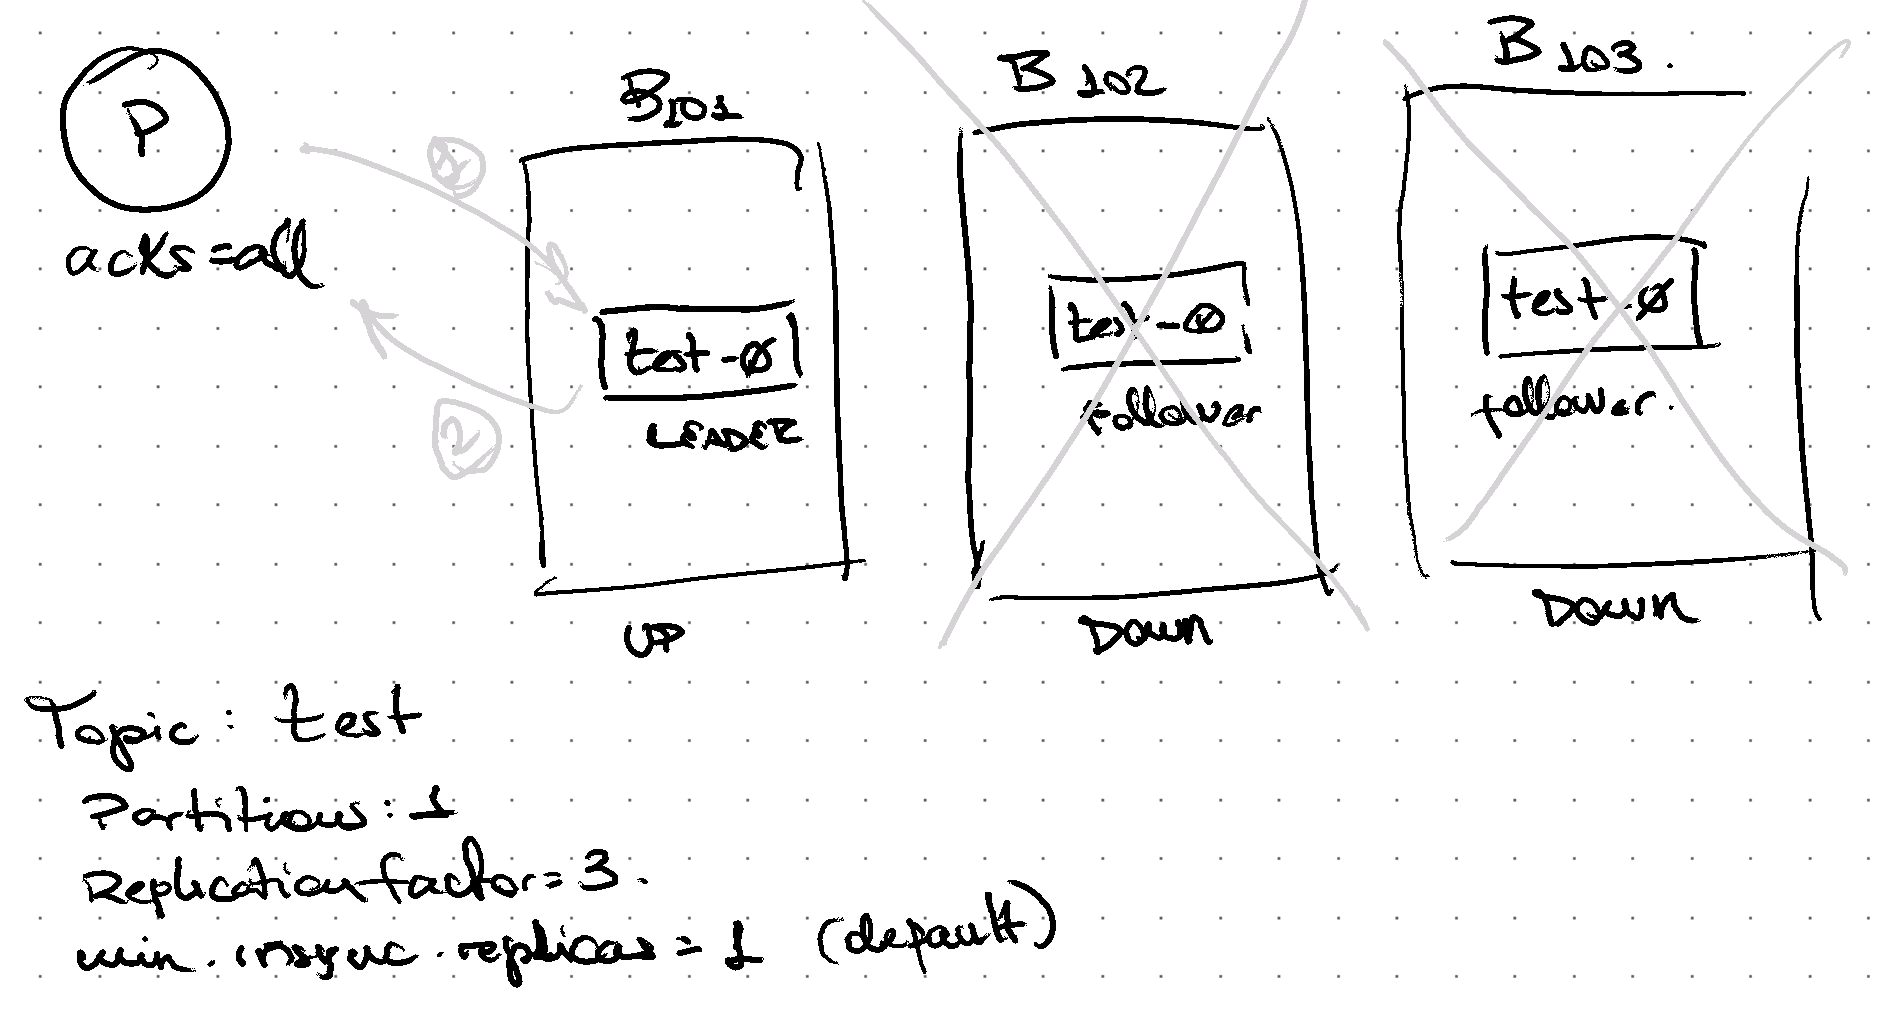 P
acks=all
1
2
B101
test-0
LEADER
UP
B102
test-0
follower
DOWN
B103.
test-0
follower.
DOWN
Topic: test
Partitions: 1
Replication factor = 3.
min.insync.replicas = 1 (default)